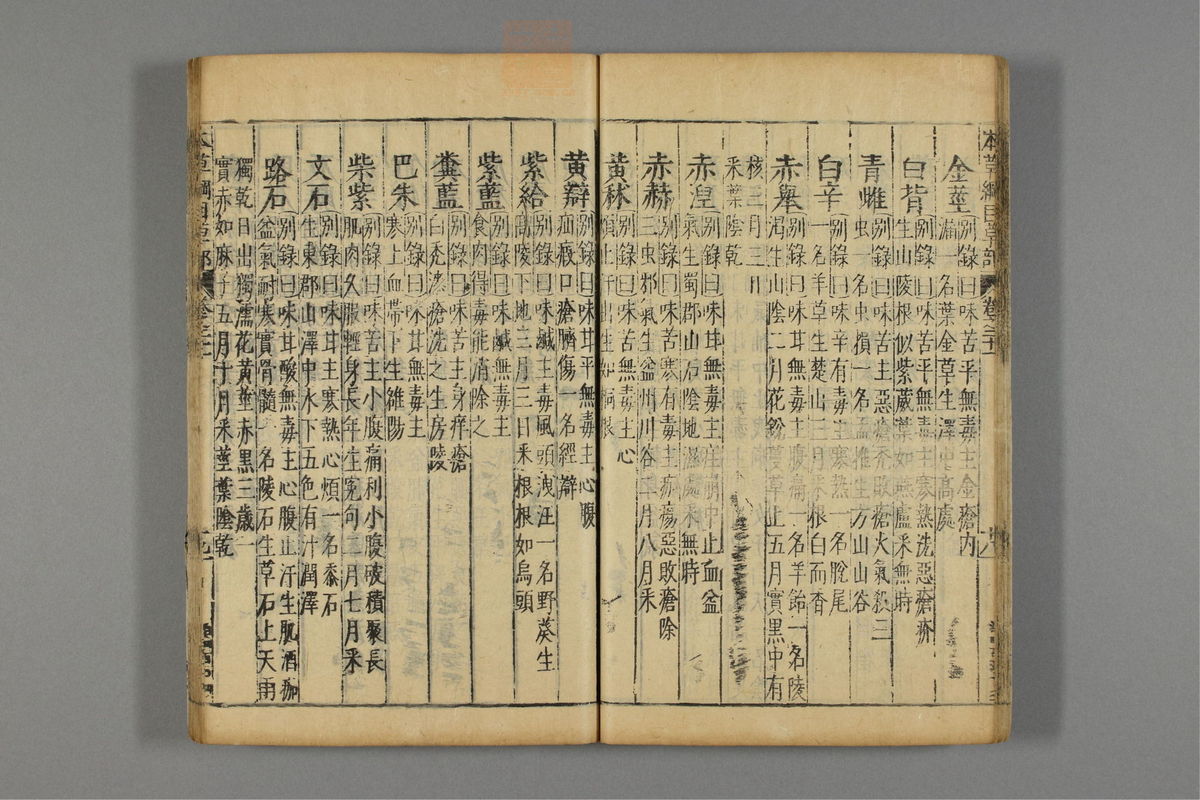 本草綱目草部 卷二十一
金莖 別錄曰味苦平無毒主金瘡內
漏一名葉金草生澤中高處
白背 別錄曰味苦平無毒主寒熱洗惡瘡疥
生山陵根似紫葳葉如燕盧采無時
青雌 別錄曰味苦主惡瘡禿敗瘡火氣殺三
蟲一名虫損一名孟推生方山山谷
白辛 別錄曰味辛有毒主寒熱一名脫尾
一名羊草生楚山三月采根白而香
赤舉 別錄曰味甘無毒主腹痛一名羊飴一名陵
渴生山陰二月花銳蔓草上五月實黑中有
核三月三
采葉陰乾
赤涅 別錄曰味甘無毒主崩中止血益
氣生蜀郡山石陰地濕處采無時
赤赫 別錄曰味苦寒有毒主痂瘍惡敗瘡除
三虫邪氣生益州川谷二月八月采
黃秫 別錄曰味苦無毒主心
煩止汗出生如桐根
黃辯 別錄曰味甘平無毒主心腹
疝瘕口瘡臍傷一名經辯
紫給 別錄曰味鹹主毒風頭洩注一名野葵生
高陵下地三月三日采根根如烏頭
紫藍 別錄曰味鹹無毒主
食肉得毒能消除之
糞藍 別錄曰味苦主身痒瘡
白禿漆瘡洗之生房陵
巴朱 別錄曰味甘無毒主
寒上血帶下生雒陽
柴紫 別錄曰味苦主小腹痛利小腹破積聚長
肌肉久服輕身長年生冤句二月七月采
文石 別錄曰味甘主寒熱心煩一名黍石
生東郡山澤中水下五色有汁潤澤
路石 別錄曰味甘酸無毒主心腹止汗生肌酒痂
益氣耐寒實骨髓一名陵石生草石上天雨
獨乾日出獨濡花黃莖赤黑三歲一
實赤如麻子五月十月采莖葉陰乾
本草綱目草部 卷二十一